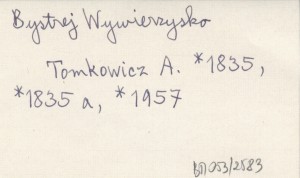 Bystrej Wywierzysko
Tomkowicz A. *1835,
*1835 a, *1957
053/2583